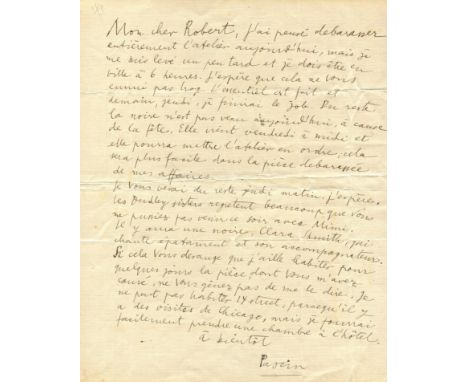 Mon cher Robert, j'ai pensé debarasser
entièrement l'atelier aujourd'hui, mais je
me suis levé un peu tard et je dois être en
ville à 6 heures. J'espère que cela ne vous
ennuie pas trop. L'essentiel est fait et
demain, jeudi, je finirai le job. Du reste
la noire n'est pas venu aujourd'hui, à cause
de la fête. Elle vient vendredi à midi et
elle pourra mettre l'atelier en ordre; cela
sera plus facile dans la pièce debarassée
de mes affaires.
Je vous verai du reste jeudi matin, j'espère.
Les Dudley sisters repetent beaucoup que vous
ne puniez pas venir ce soir avec Mimi.
Il y aura une noire, Clara Smith, qui
chante épatament et son accompagnateur.
Si cela vous derange que j'aille habiter pour
quelques jours la pièce dont vous m'avez
causé, ne vous gênez pas de me le dire. Je
ne peut pas habiter 14 street, parcequ'il y
a des visites de Chicago, mais je pourrais
facilement prendre une chambre à l'hôtel.
à bientôt
Pascin